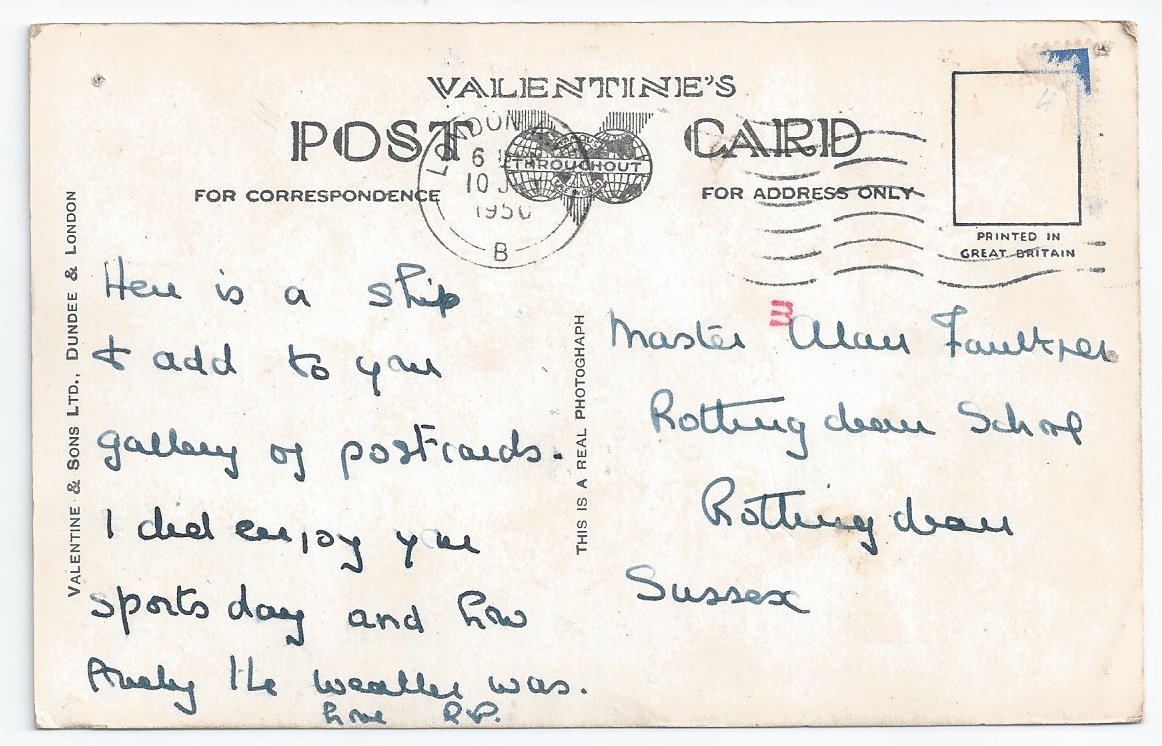 VALENTINE'S
POST CARD
FAMOUS
THROUGHOUT
THE WORLD
FOR CORRESPONDENCE
FOR ADDRESS ONLY
LONDON
6
10 J
1950
B
PRINTED IN
GREAT BRITAIN
VALENTINE & SONS LTD., DUNDEE & LONDON
THIS IS A REAL PHOTOGRAPH
Here is a ship
to add to your
gallery of postcards.
I did enjoy your
sports day and how
lovely the weather was.
love R.P.
Master Alan Faulkner
Rottingdean School
Rottingdean
Sussex